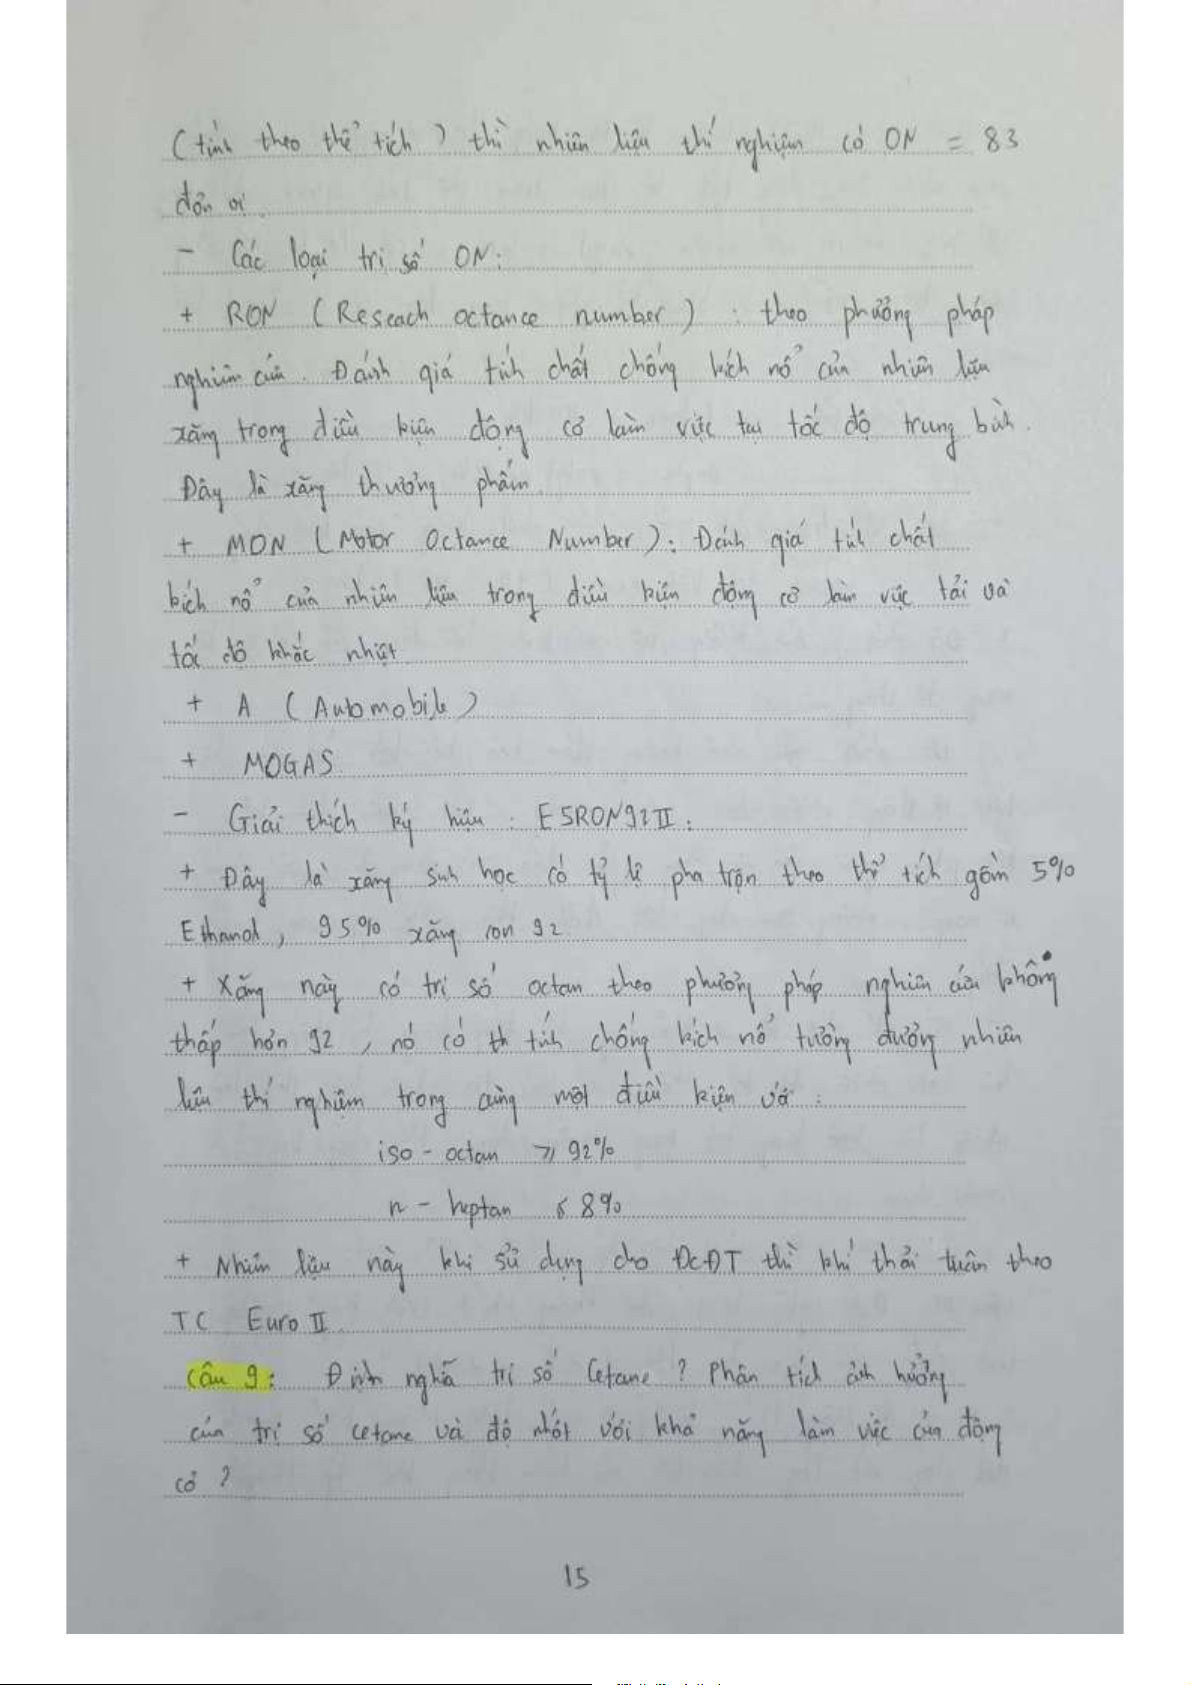 (tính theo thể tích) thì nhiên liệu thí nghiệm có ON = 83
đơn vị.
- Các loại trị số ON:
+ RON (Reseach octance number) : theo phương pháp
nghiên cứu. Đánh giá tính chất chống kích nổ của nhiên liệu
xăng trong điều kiện động cơ làm việc tại tốc độ trung bình.
Đây là xăng thương phẩm.
+ MON (Motor Octance Number): Đánh giá tính chất
kích nổ của nhiên liệu trong điều kiện động cơ làm việc tải và
tốc độ khắc nhiệt
+ A (Automobile)
+ MOGAS
- Giải thích ký hiệu : E5RON92II:
+ Đây là xăng sinh học có tỷ lệ pha trộn theo thể tích gồm 5%
Ethanol, 95% xăng ron 92
+ Xăng này có trị số octan theo phương pháp nghiên cứu không
thấp hơn 92, nó có th tính chống kích nổ tương đương nhiên
liệu thí nghiệm trong cùng một điều kiện với :
iso - octan ⩾ 92%
n - heptan ⩽ 8%
+ Nhiên liệu này khi sử dụng cho ĐCĐT thì khí thải tuân theo
TC Euro II
Câu 9: Định nghĩa trị số Cetane ? Phân tích ảnh hưởng
của trị số cetane và độ nhớt với khả năng làm việc của động
cơ ?
15